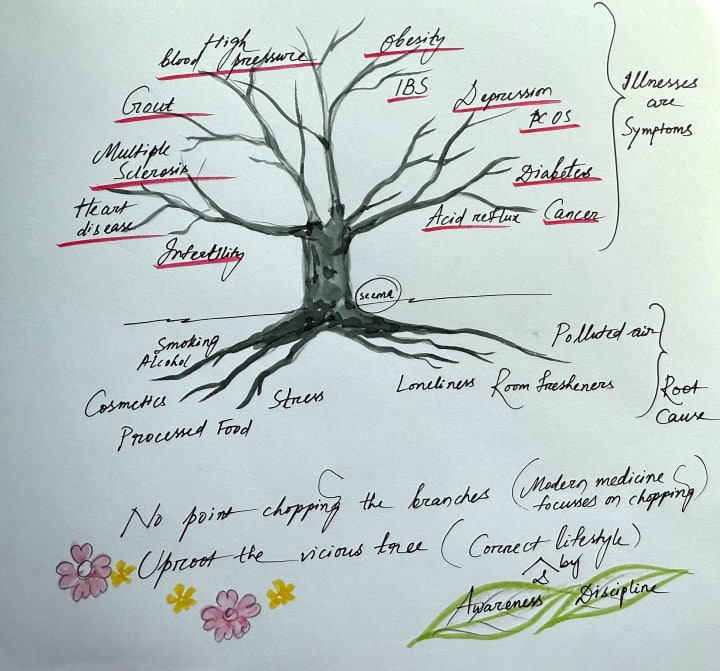 High
blood pressure
Obesity
IBS
Gout
Depression
PCOS
Multiple
Sclerosis
Diabetes
Heart
disease
Acid reflux
Cancer
Infertility
Illnesses
are
Symptoms
seema
Smoking
Alcohol
Cosmetics
Processed Food
Stress
Loneliness
Room Fresheners
Polluted air
Root
Cause
No point chopping the branches (Modern medicine
focusses on chopping)
Uproot the vicious tree (Correct lifestyle)
by
Awareness & Discipline